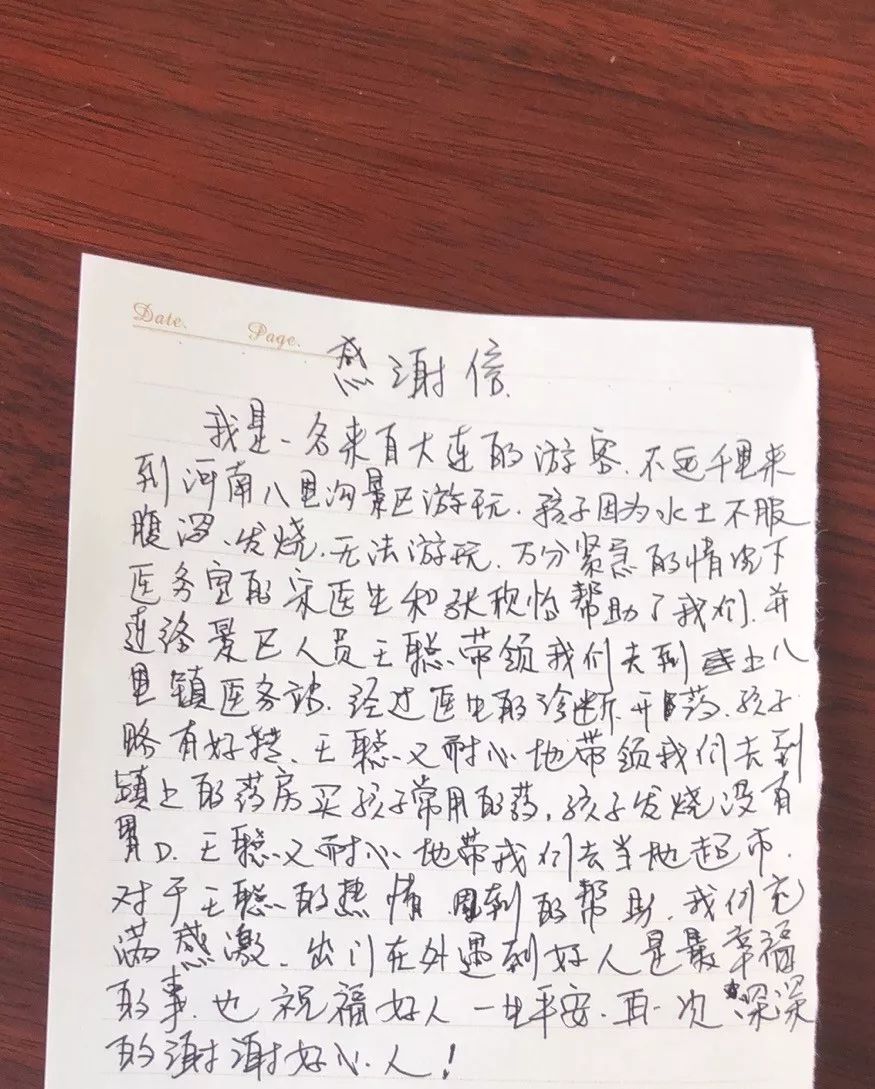 Date.
Page.
感谢信.
我是一名来自大连的游客.不远千里来
到河南八里沟景区游玩.孩子因为水土不服
腹泻、发烧.无法游玩.万分紧急的情况下
医务室的宋医生和张秋怡帮助了我们.并
连络景区人员王聪.带领我们去到上八
里镇医务站.经过医生的诊断.开药.孩子
略有好转.王聪又耐心地带领我们去到
镇上的药房买孩子常用的药.孩子发烧没有
胃口.王聪又耐心地带我们去当地超市.
对于王聪的热情周到的帮助.我们充
满感激.出门在外遇到好人是最幸福
的事.也祝福好人一生平安.再一次深深
的谢谢好心人!